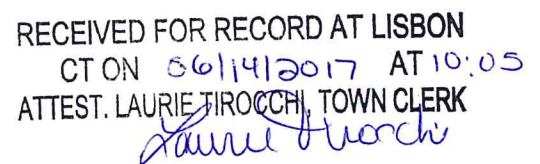 RECEIVED FOR RECORD AT LISBON
CT ON 06/14/2017 AT 10:05
ATTEST. LAURIE TIROCCHI, TOWN CLERK
Laurie Tirocchi